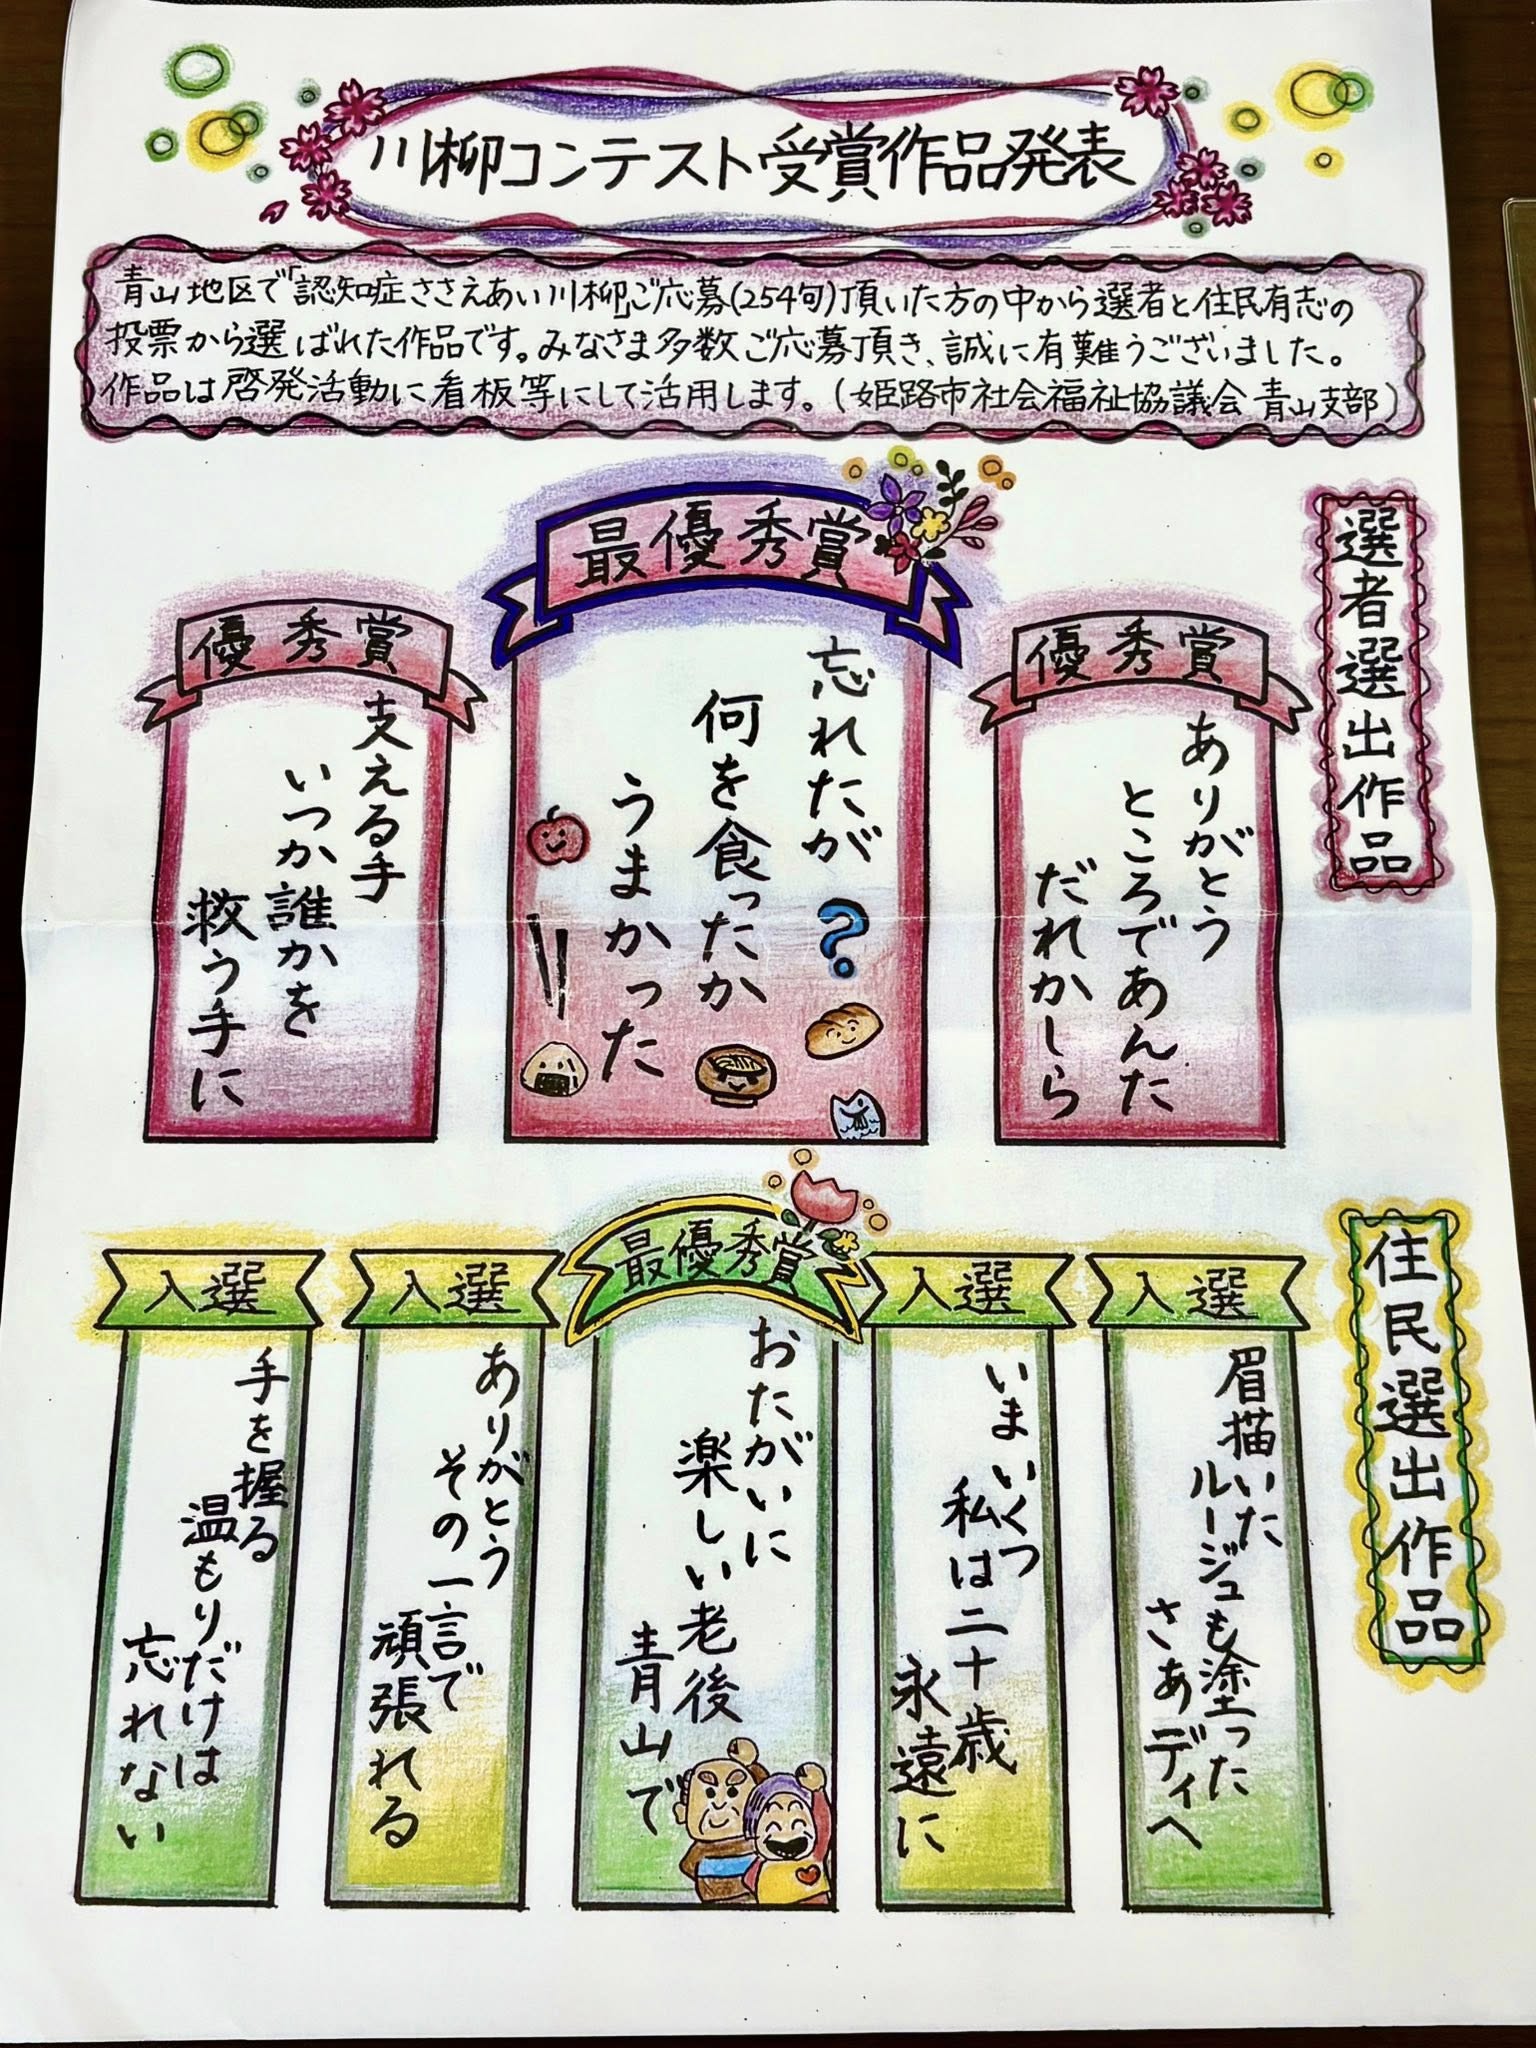 川柳コンテスト受賞作品発表
青山地区で「認知症ささえあい川柳」ご応募(254句)頂いた方の中から選者と住民有志の
投票から選ばれた作品です。みなさま多数ご応募頂き、誠に有難うございました。
作品は啓発活動に看板等にして活用します。(姫路市社会福祉協議会 青山支部)
選者選出作品
優秀賞
ありがとう
ところであんた
だれかしら
最優秀賞
忘れたが
何を食ったか
うまかった
?
優秀賞
支える手
いつか誰かを
救う手に
住民選出作品
入選
眉描いた
ルージュも塗った
さあディへ
入選
いまいくつ
私は二十歳
永遠に
最優秀賞
おたがいに
楽しい老後
青山で
入選
ありがとう
その一言で
頑張れる
入選
手を握る
温もりだけは
忘れない